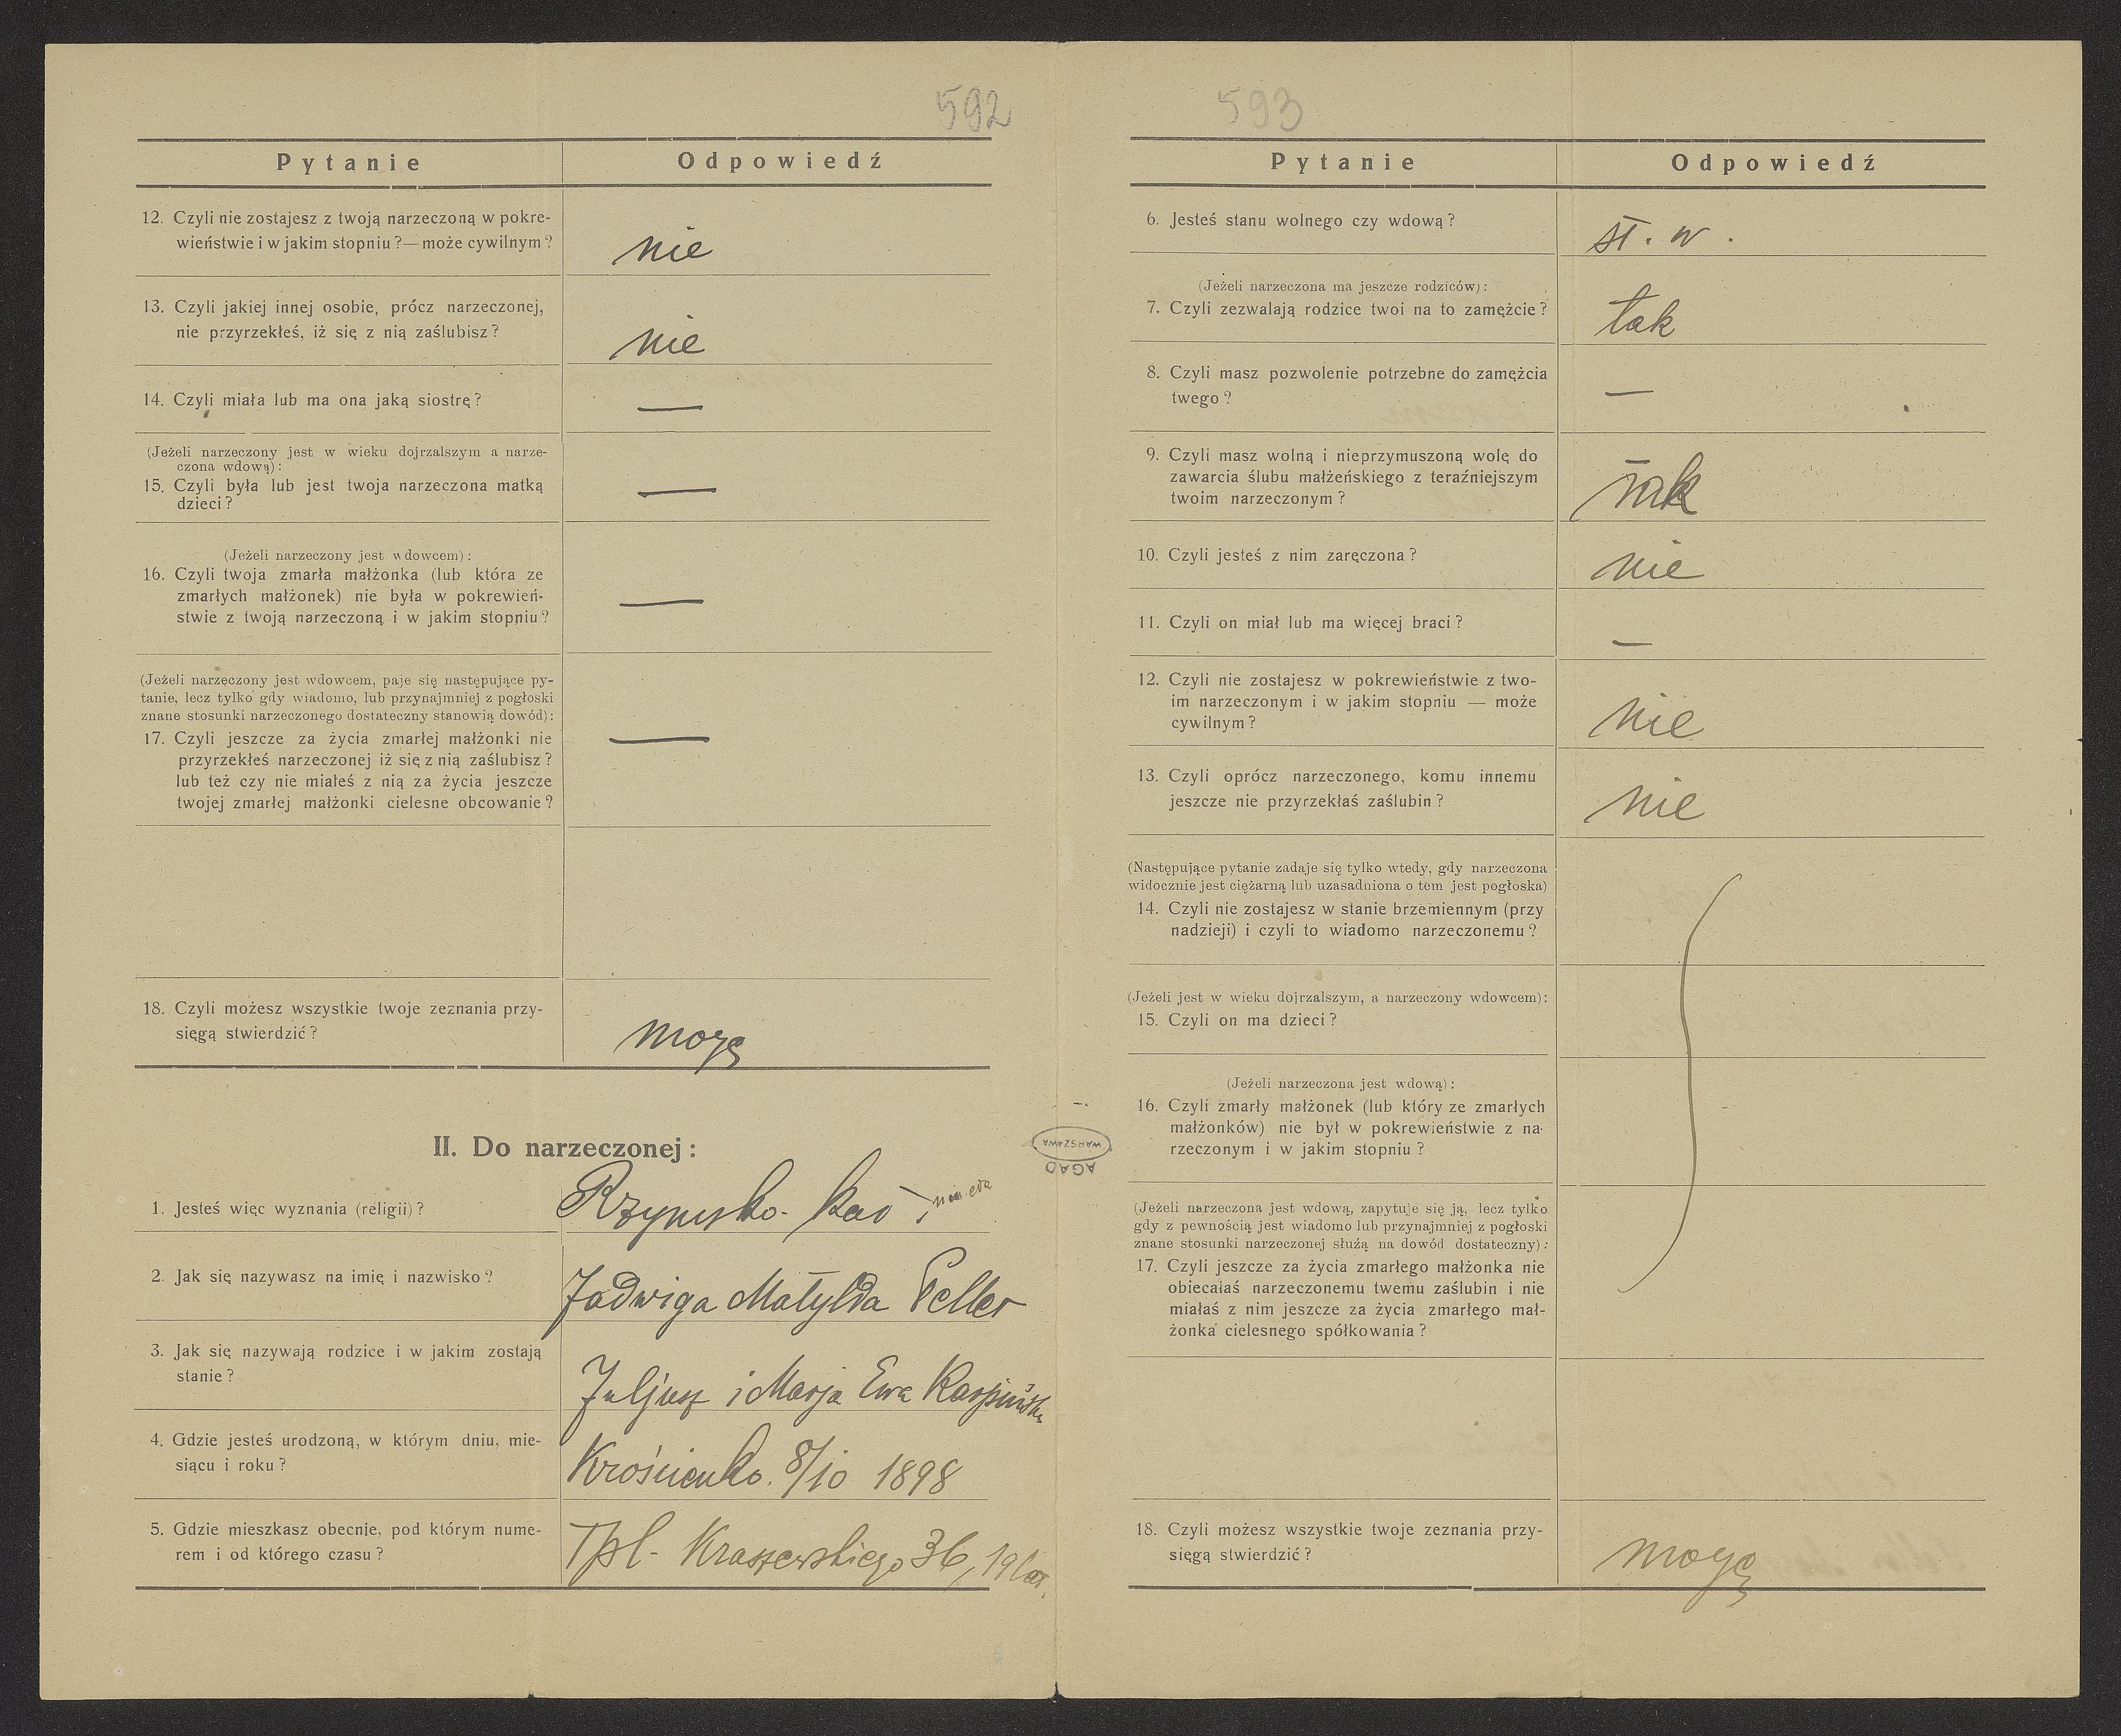 592
Pytanie Odpowiedź
12. Czyli nie zostajesz z twoją narzeczoną w pokre-
wieństwie i w jakim stopniu?—może cywilnym? nie
13. Czyli jakiej innej osobie, prócz narzeczonej,
nie przyrzekłeś, iż się z nią zaślubisz? nie
14. Czyli miała lub ma ona jaką siostrę? —
(Jeżeli narzeczony jest w wieku dojrzalszym a narze-
czona wdową):
15. Czyli była lub jest twoja narzeczona matką —
dzieci?
(Jeżeli narzeczony jest wdowcem):
16. Czyli twoja zmarła małżonka (lub która ze
zmarłych małżonek) nie była w pokrewień- —
stwie z twoją narzeczoną i w jakim stopniu?
(Jeżeli narzęczony jest wdowcem, paje się następujące py-
tanie, lecz tylko gdy wiadomo, lub przynajmniej z pogłoski
znane stosunki narzeczonego dostateczny stanowią dowód):
17. Czyli jeszcze za życia zmarłej małżonki nie —
przyrzekłeś narzeczonej iż się z nią zaślubisz?
lub też czy nie miałeś z nią za życia jeszcze
twojej zmarłej małżonki cielesne obcowanie?
18. Czyli możesz wszystkie twoje zeznania przy-
sięgą stwierdzić? mogę
II. Do narzeczonej:
1. Jesteś więc wyznania (religii)? Rzymsko-kat
2. Jak się nazywasz na imię i nazwisko? Jadwiga Matylda Peller
3. Jak się nazywają rodzice i w jakim zostają
stanie? Juljusz i Marja Ewa Karpińska
4. Gdzie jesteś urodzoną, w którym dniu, mie-
siącu i roku? Krościenko. 8/10 1898
5. Gdzie mieszkasz obecnie, pod którym nume-
rem i od którego czasu? Tpl- Kraszewskiego 36, 19 lat.
AGAD
WARSZAWA
593
Pytanie Odpowiedź
6. Jesteś stanu wolnego czy wdową? st. w.
(Jeżeli narzeczona ma jeszcze rodziców):
7. Czyli zezwalają rodzice twoi na to zamężcie? tak
8. Czyli masz pozwolenie potrzebne do zamężcia
twego? —
9. Czyli masz wolną i nieprzymuszoną wolę do
zawarcia ślubu małżeńskiego z teraźniejszym
twoim narzeczonym? tak
10. Czyli jesteś z nim zaręczona? nie
11. Czyli on miał lub ma więcej braci? —
12. Czyli nie zostajesz w pokrewieństwie z two-
im narzeczonym i w jakim stopniu — może
cywilnym? nie
13. Czyli oprócz narzeczonego, komu innemu
jeszcze nie przyrzekłaś zaślubin? nie
(Następujące pytanie zadaje się tylko wtedy, gdy narzeczona
widocznie jest ciężarną lub uzasadniona o tem jest pogłoska)
14. Czyli nie zostajesz w stanie brzemiennym (przy
nadzieji) i czyli to wiadomo narzeczonemu?
(Jeżeli jest w wieku dojrzalszym, a narzeczony wdowcem):
15. Czyli on ma dzieci?
(Jeżeli narzeczona jest wdową):
16. Czyli zmarły małżonek (lub który ze zmarłych
małżonków) nie był w pokrewieństwie z na-
rzeczonym i w jakim stopniu?
(Jeżeli narzeczona jest wdową, zapytuje się ją, lecz tylko
gdy z pewnością jest wiadomo lub przynajmniej z pogłoski
znane stosunki narzeczonej służą na dowód dostateczny):
17. Czyli jeszcze za życia zmarłego małżonka nie
obiecałaś narzeczonemu twemu zaślubin i nie
miałaś z nim jeszcze za życia zmarłego mał-
żonka cielesnego spółkowania?
18. Czyli możesz wszystkie twoje zeznania przy-
sięgą stwierdzić? mogę